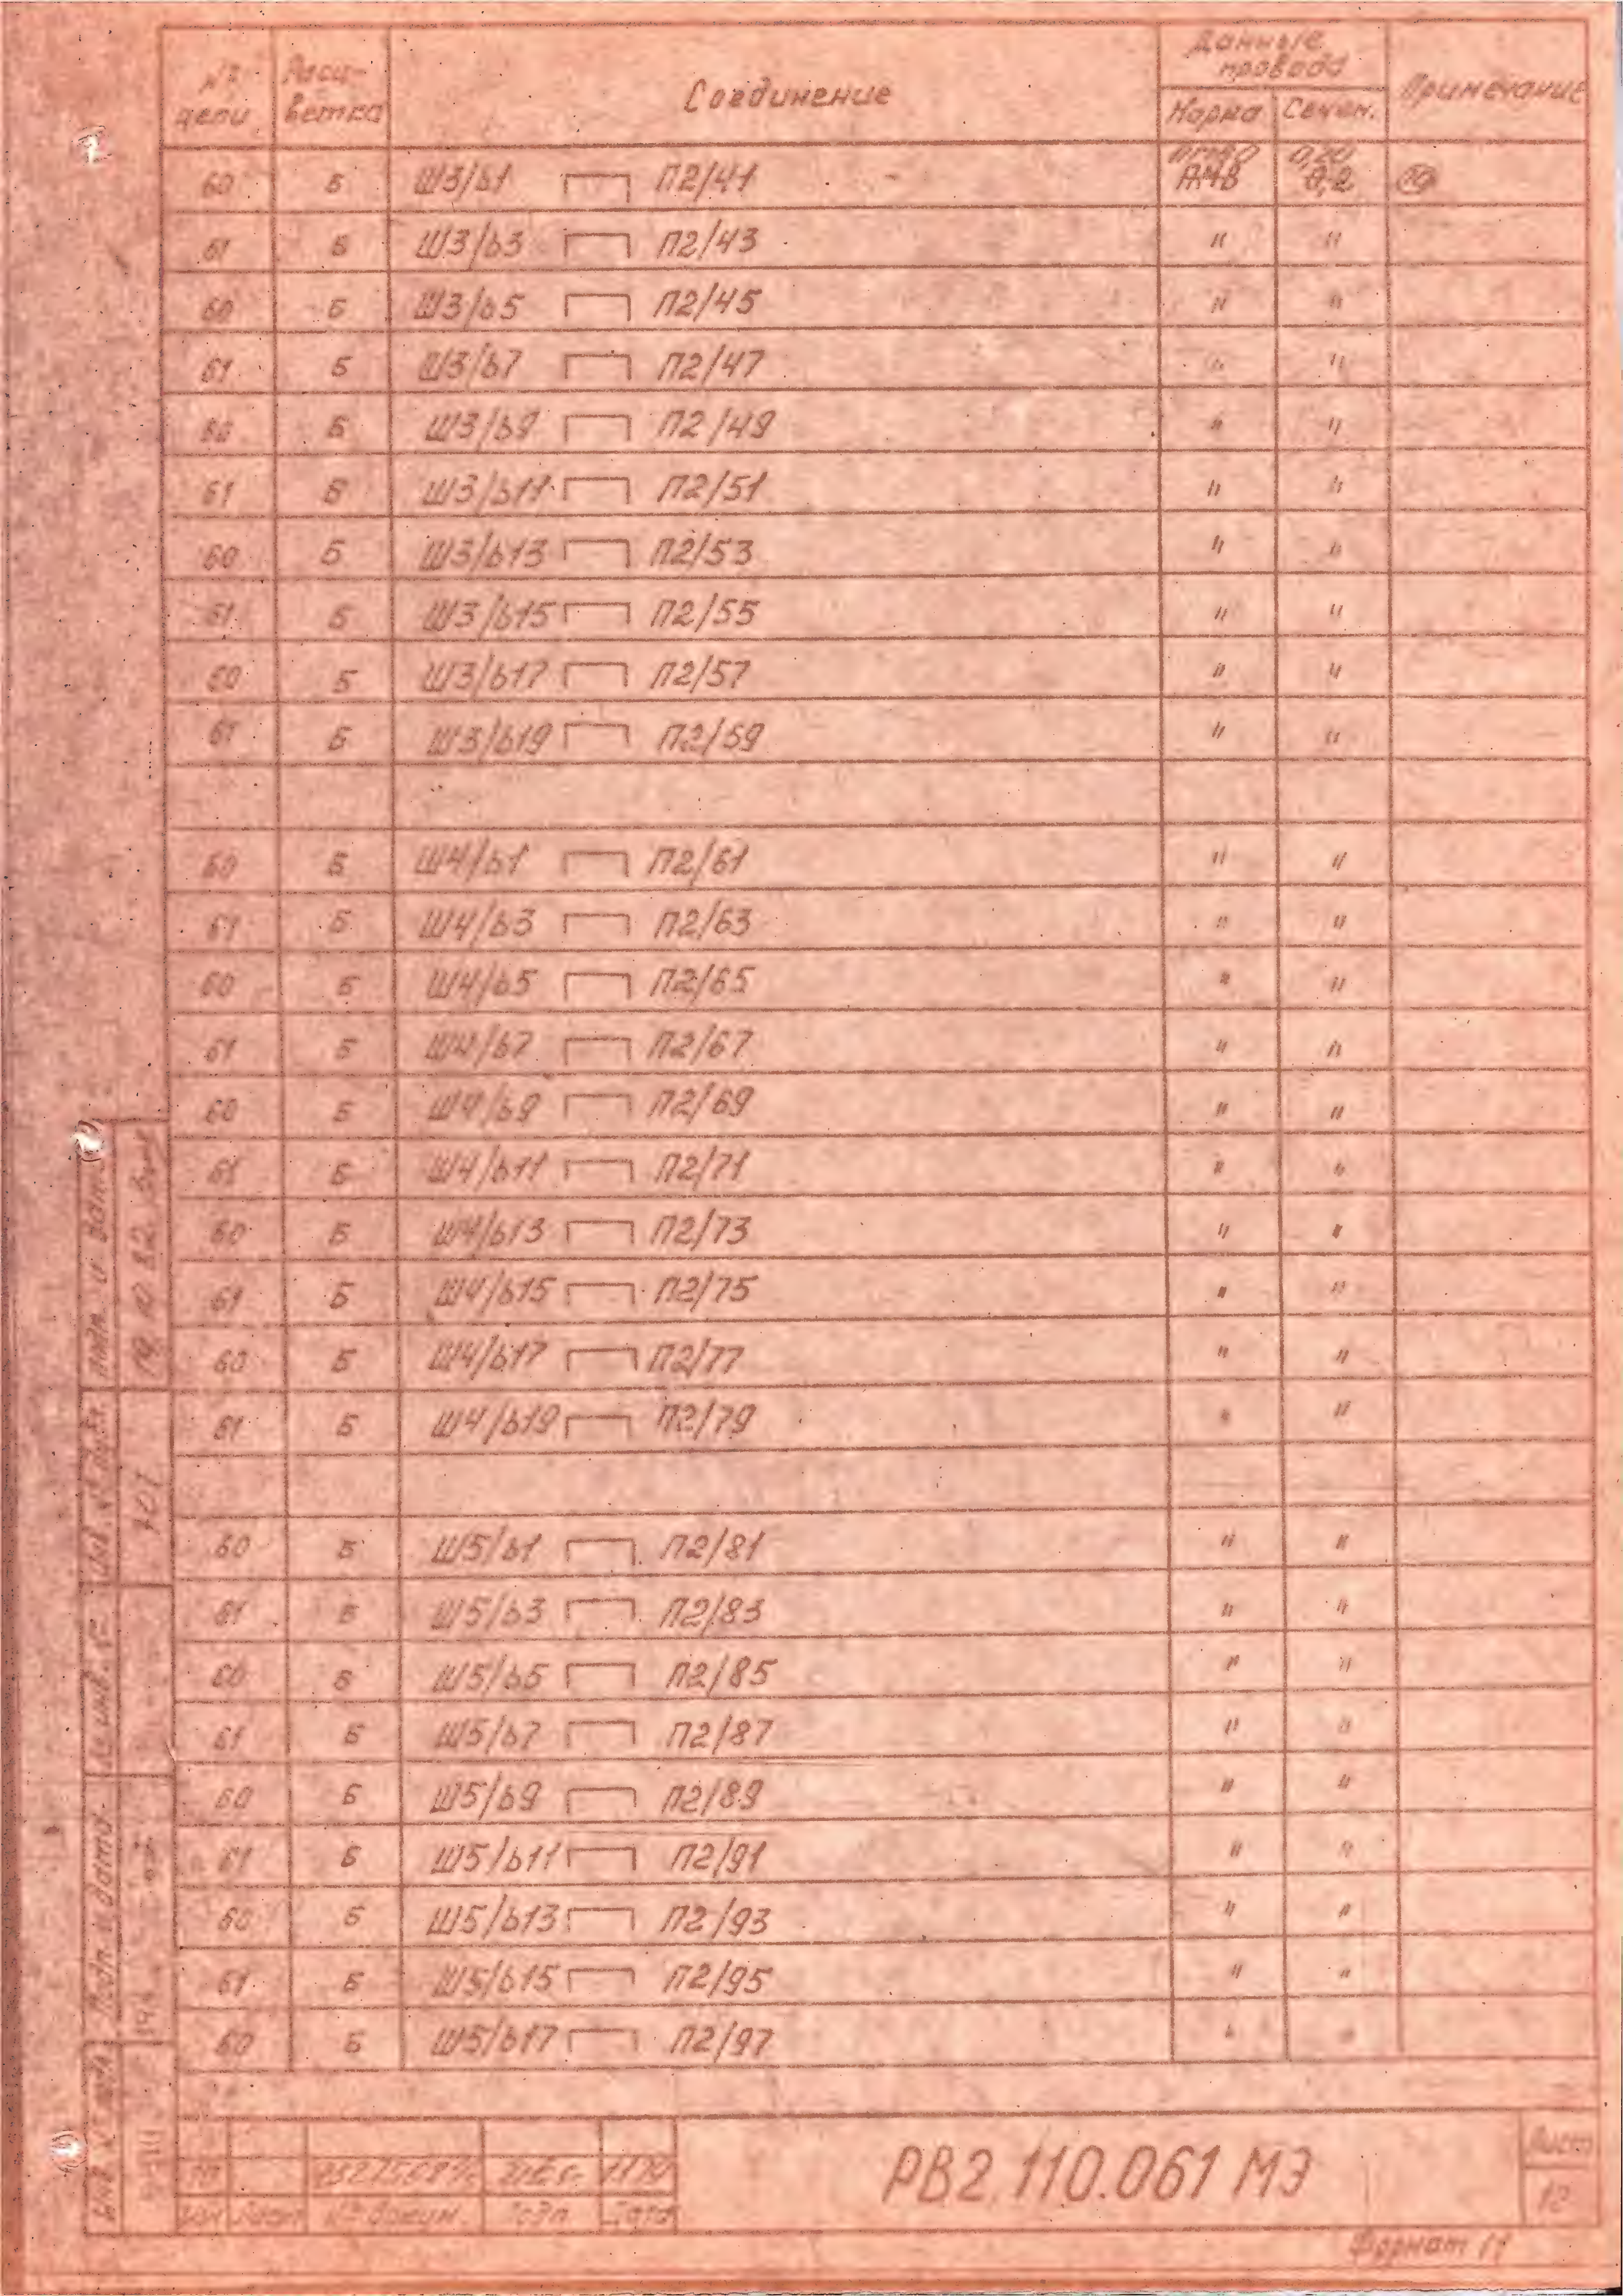 № цепи Расцветка Соединение Данные провода Примечание
Марка Сечен.
60 Б Ш3/б1 П2/41 АМВ 0,20 0,2
61 Б Ш3/б3 П2/43 " "
60 Б Ш3/б5 П2/45 " "
61 Б Ш3/б7 П2/47 " "
60 Б Ш3/б9 П2/49 " "
61 Б Ш3/б11 П2/51 " "
60 Б Ш3/б13 П2/53 " "
61 Б Ш3/б15 П2/55 " "
60 Б Ш3/б17 П2/57 " "
61 Б Ш3/б19 П2/59 " "
60 Б Ш4/б1 П2/61 " "
61 Б Ш4/б3 П2/63 " "
60 Б Ш4/б5 П2/65 " "
61 Б Ш4/б7 П2/67 " "
60 Б Ш4/б9 П2/69 " "
61 Б Ш4/б11 П2/71 " "
60 Б Ш4/б13 П2/73 " "
61 Б Ш4/б15 П2/75 " "
60 Б Ш4/б17 П2/77 " "
61 Б Ш4/б19 П2/79 " "
60 Б Ш5/б1 П2/81 " "
61 Б Ш5/б3 П2/83 " "
60 Б Ш5/б5 П2/85 " "
61 Б Ш5/б7 П2/87 " "
60 Б Ш5/б9 П2/89 " "
61 Б Ш5/б11 П2/91 " "
60 Б Ш5/б13 П2/93 " "
61 Б Ш5/б15 П2/95 " "
60 Б Ш5/б17 П2/97 " "
Подп. и дата
19.10.82
Инв. № дубл.
Подп. и дата
РВ2.110.061 МЭ
Лист
12
Изм Лист № докум. Подп. Дата
Формат 11